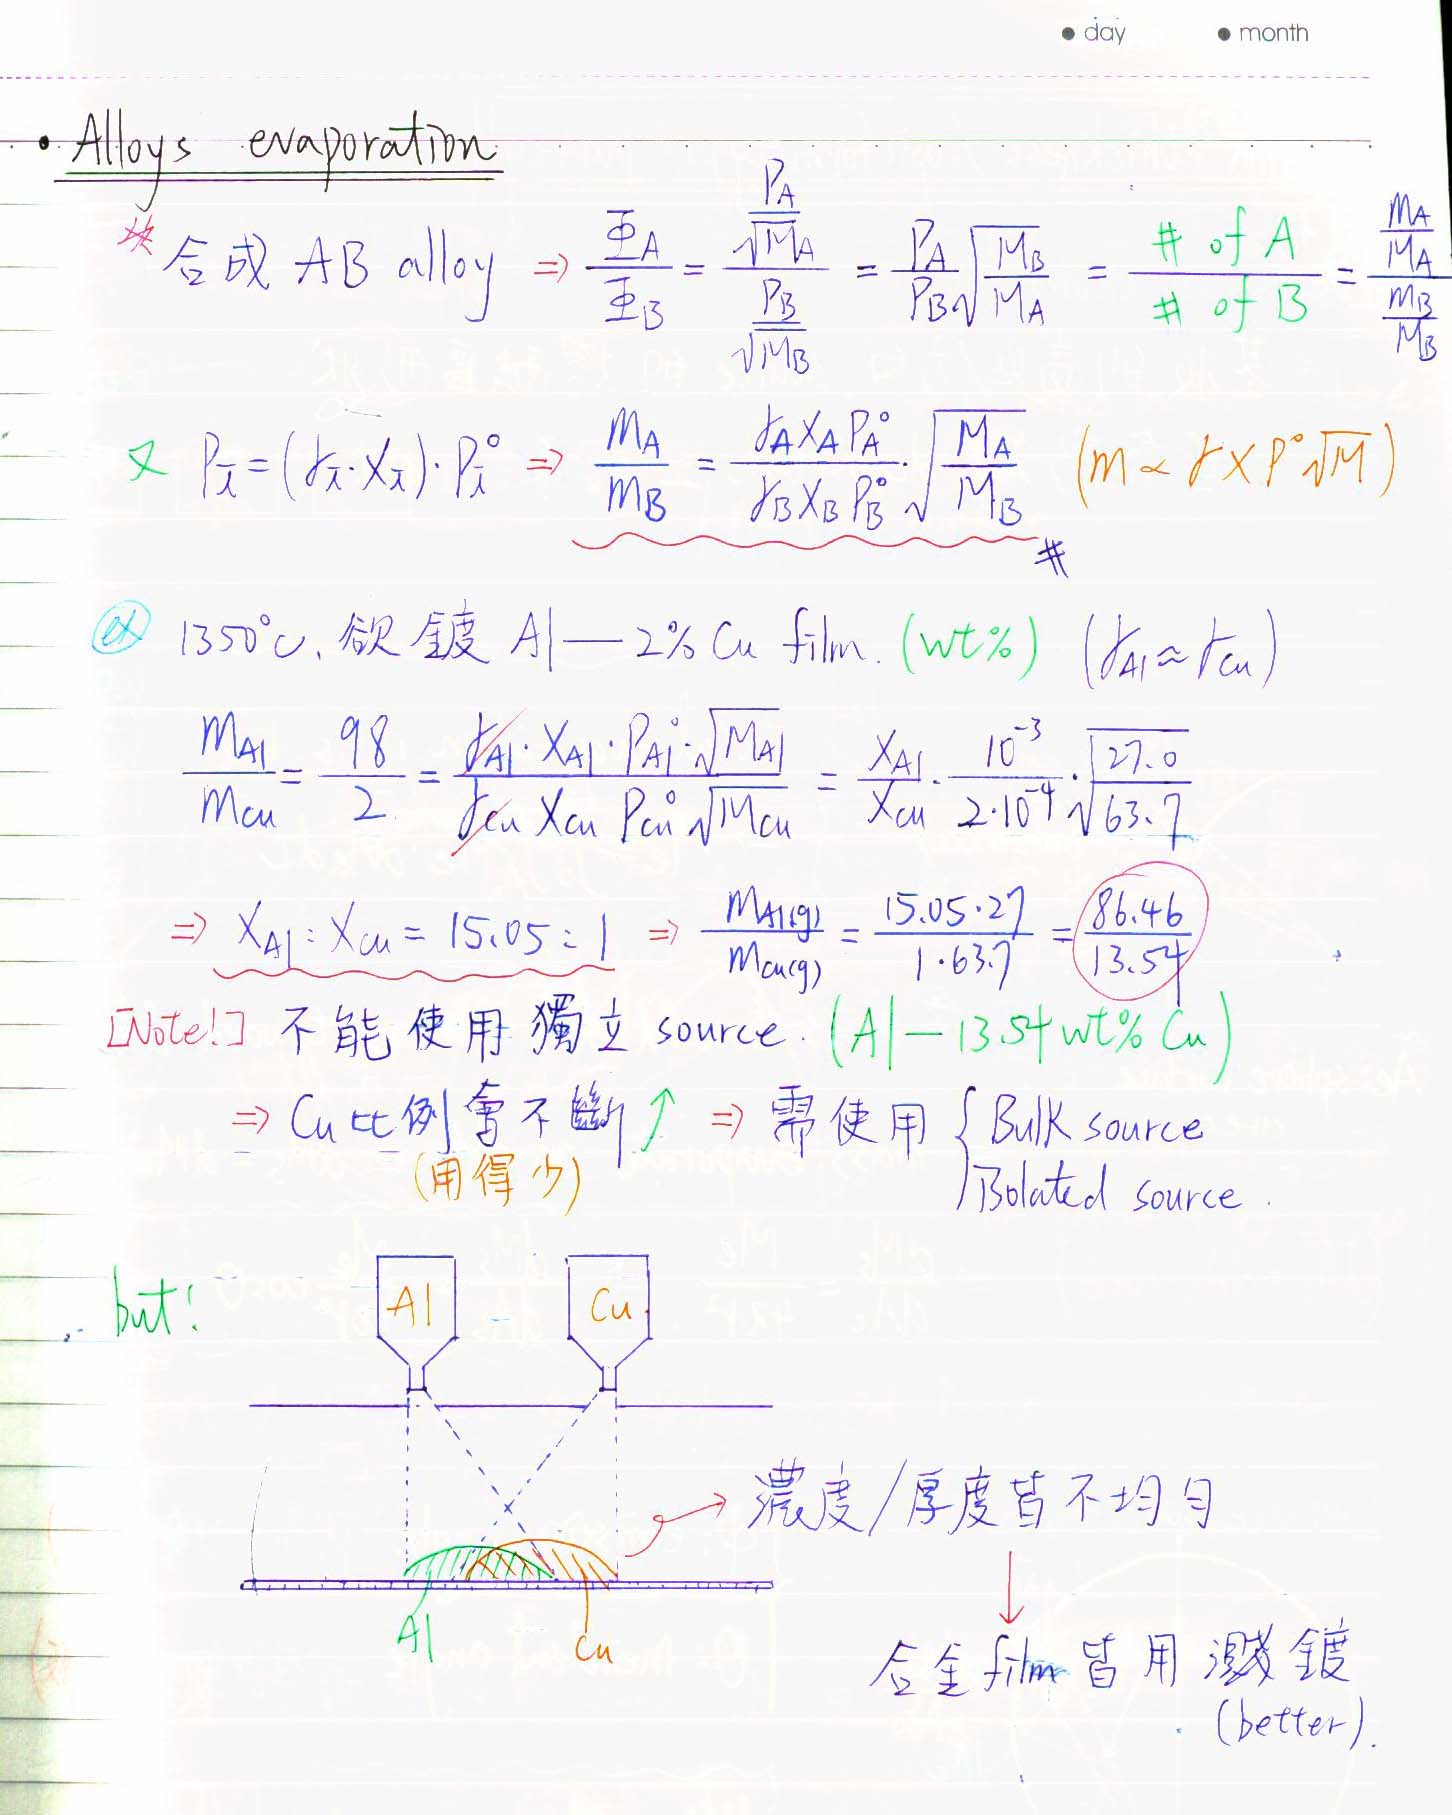 • day • month
• Alloys evaporation
* 合成 AB alloy ⇒ Φ_A/Φ_B = (P_A/√M_A)/(P_B/√M_B) = P_A/P_B √(M_B/M_A) = # of A/# of B = (m_A/M_A)/(m_B/M_B)
又 P_i = (γ_i·X_i)·P_i° ⇒ m_A/m_B = γ_A X_A P_A°/γ_B X_B P_B° · √(M_A/M_B) (m ∝ γ X P° √M)
#
ex 1350°C, 欲鍍 Al—2% Cu film. (wt%) (γ_Al ≈ γ_Cu)
m_Al/m_Cu = 98/2 = γ_Al·X_Al·P_Al°·√M_Al/γ_Cu X_Cu P_Cu° √M_Cu = X_Al/X_Cu · 10^-3/2·10^-4 · √(27.0/63.7)
⇒ X_Al : X_Cu = 15.05 : 1 ⇒ m_Al(g)/m_Cu(g) = 15.05·27/1·63.7 = 86.46/13.54
[Note!] 不能使用獨立 source. (Al—13.54 wt% Cu)
⇒ Cu 比例會不斷↑ ⇒ 需使用 { Bulk source
(用得少) Isolated source.
but!
Al Cu
濃度/厚度皆不均勻
Al Cu
合金 film 皆用濺鍍
(better).